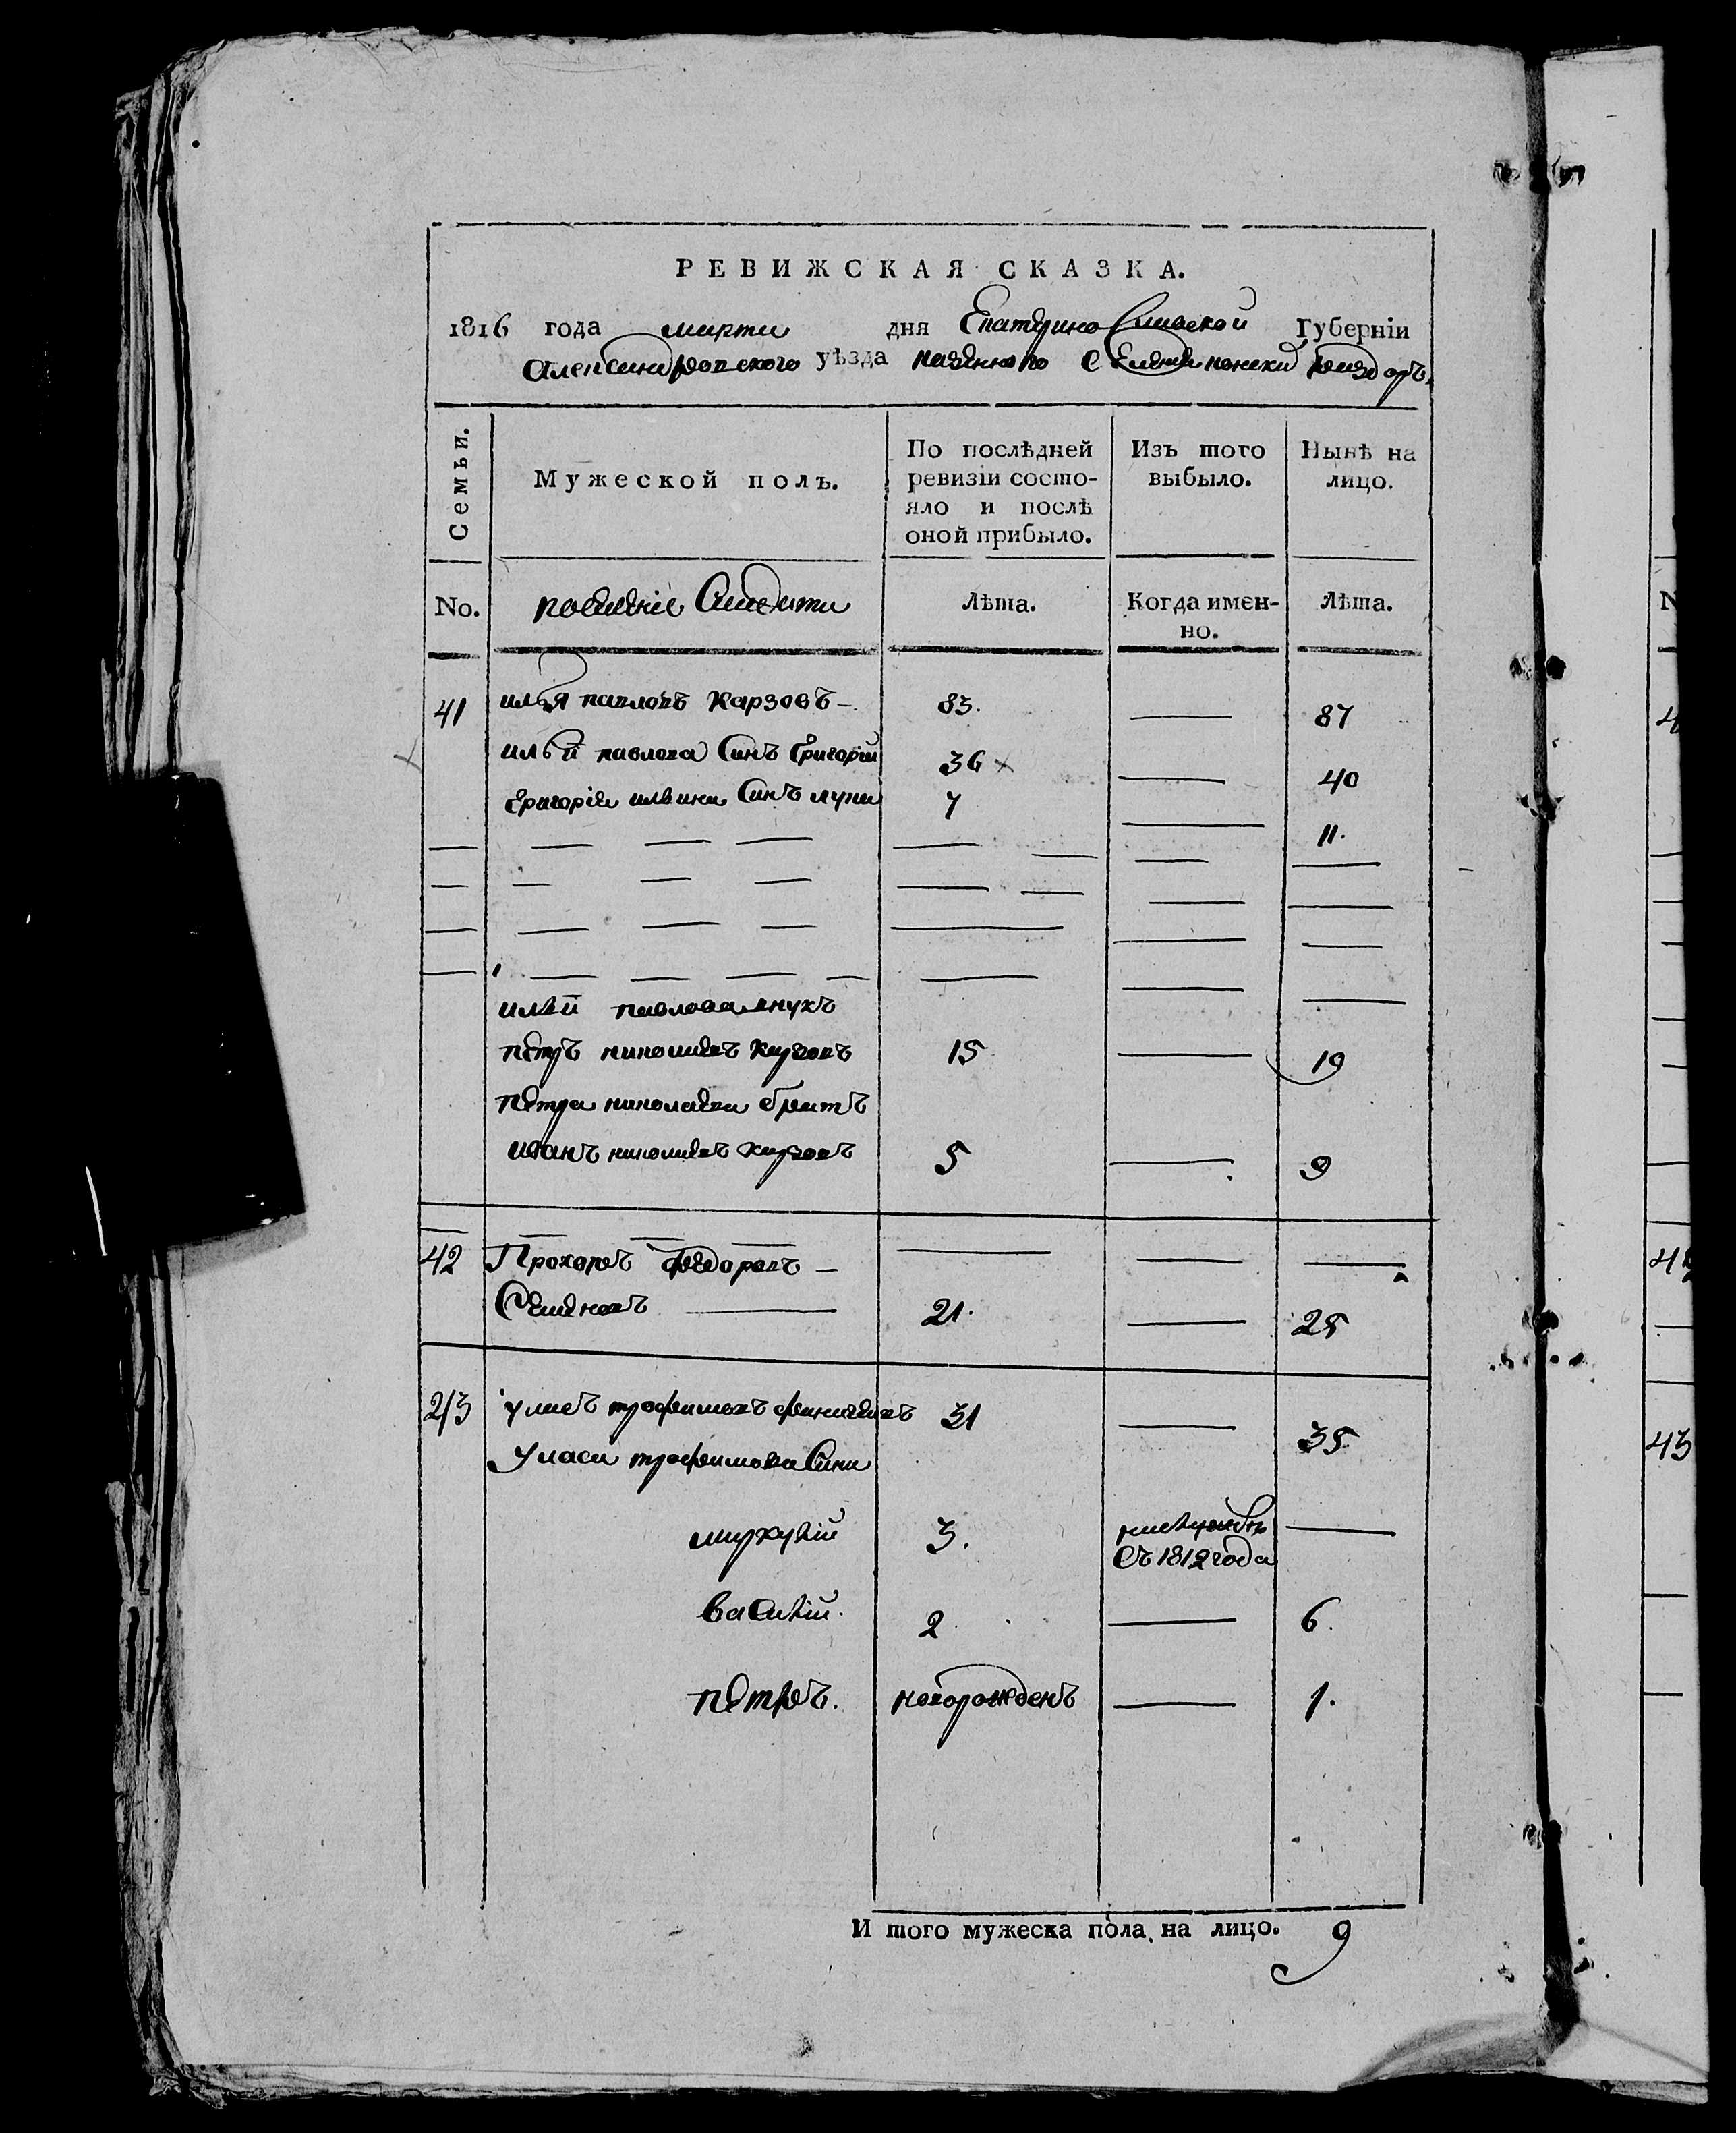 РЕВИЖСКАЯ СКАЗКА.
1816 года марта дня Екатеринославской Губерніи
Александровского уѣзда казенного селения
Семьи.
Мужеской полъ.
По послѣдней ревизіи состо-
яло и послѣ
оной прибыло.
Изъ того
выбыло.
Нынѣ на
лицо.
No.
Лѣта.
Когда имен-
но.
Лѣта.
41 илья павловъ Карзовъ 83. 87
ильи павлова Синъ Григорій 36 × 40
Григорія ильина Синъ лука 7 11.
ильи павлова внукъ
петръ николаевъ карзовъ 15 19
Петра николаева братъ
иванъ николаевъ карзовъ 5 9
42 Прохоръ федоровъ
Семеновъ 21. 25
43 уласъ трофимовъ 31 35
Уласа трофимова Сини
меркурій 3. съ 1812 года
Василій. 2 6.
петръ. новорожденъ 1.
И того мужеска пола на лицо. 9
N
4
42
43